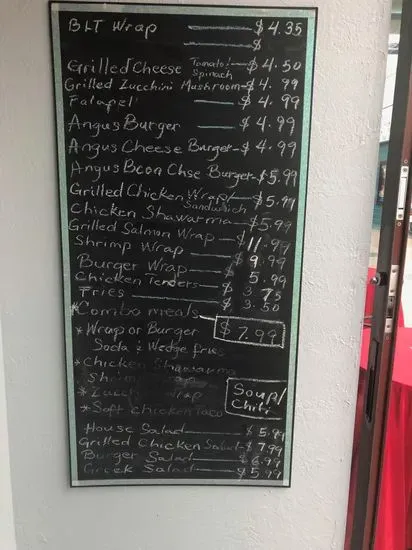 BLT Wrap $4.35
$
Grilled Cheese Tomato/ Spinach $4.50
Grilled Zucchini Mushroom $4.99
Falapel $4.99
Angus Burger $4.99
Angus Cheese Burger $4.99
Angus Bcon Chse Burger $5.99
Grilled Chicken Wrap/ Sandwich $5.99
Chicken Shawarma $5.99
Grilled Salmon Wrap $11.99
Shrimp Wrap $9.99
Burger Wrap $5.99
Chicken Tenders $3.75
Fries $3.50
*Combo meals $7.99
*Wrap or Burger
Soda & Wedge fries
*Chicken Shawarma
Shrim
*Zucch Wrap
*Soft Chicken Taco
Soup/
Chili
House Salad $5.99
Grilled Chicken Salad $7.99
Burger Salad $6.99
Greek Salad $5.99